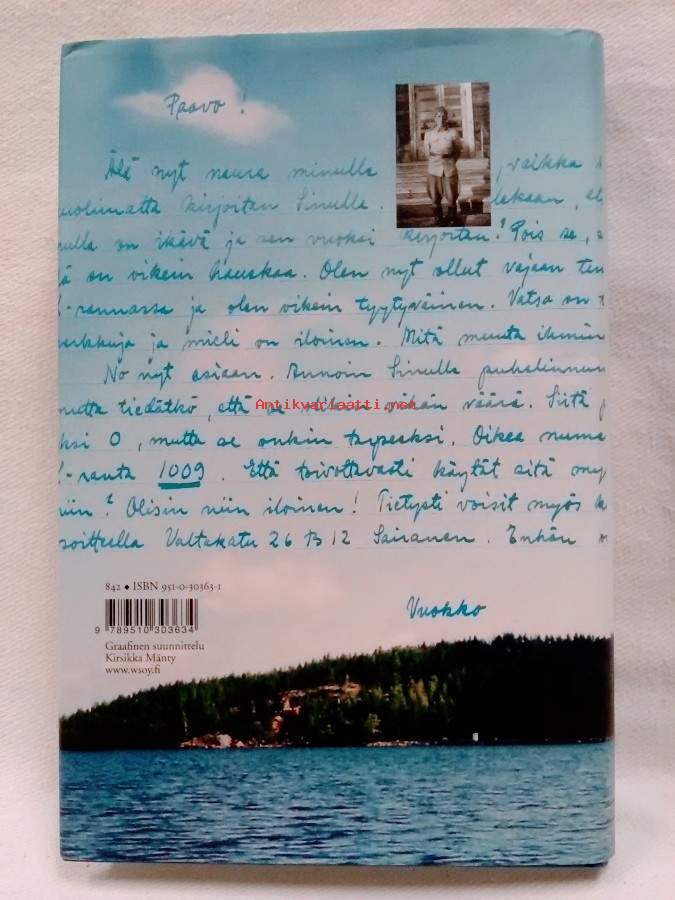 Paavo!
Älä nyt naura minulle , vaikka
kirjoitan Sinulle.
on ikävä ja sen vuoksi kirjoitan? Pois se,
on oikein hauskaa. Olen nyt ollut vajaan
-rannassa ja olen oikein tyytyväinen. Vatsa on
ja mieli on iloinen. Mitä muuta
No nyt asiaan. Annoin Sinulle
mutta tiedätkö, että väärä. Siitä
0, mutta se onkin Oikea
-ranta 1009. Että toivottavasti käytät sitä
? Olisin niin iloinen! Tietysti voisit myös
osoitteella Valtakatu 26 B 12 Sairanen. Enhän
Vuokko
Antikvariaatti.net
842 ◆ ISBN 951-0-30363-1
9 789510 303634
Graafinen suunnittelu
Kirsikka Mänty
www.wsoy.fi